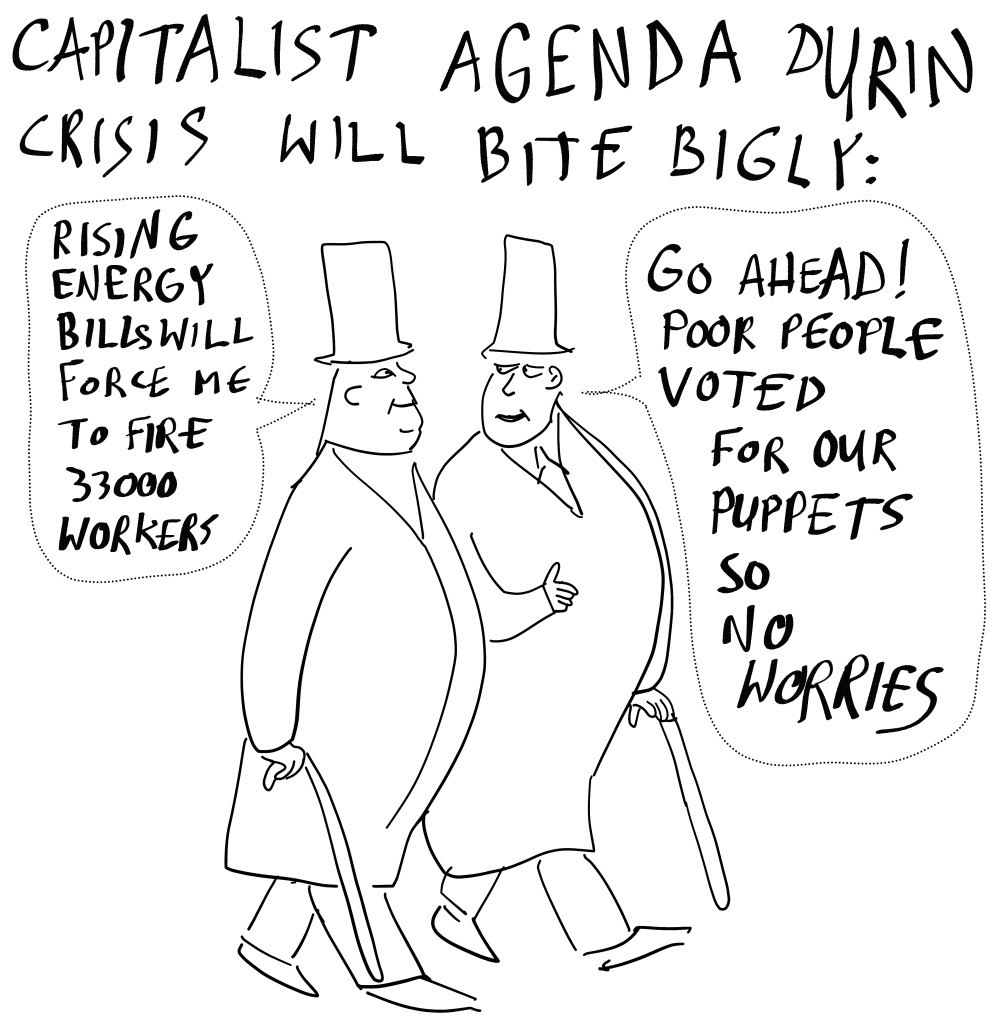 CAPITALIST AGENDA DURIN
CRISIS WILL BITE BIGLY:
RISING
ENERGY
BILLS WILL
FORCE ME
TO FIRE
33000
WORKERS
GO AHEAD!
POOR PEOPLE
VOTED
FOR OUR
PUPPETS
SO
NO
WORRIES